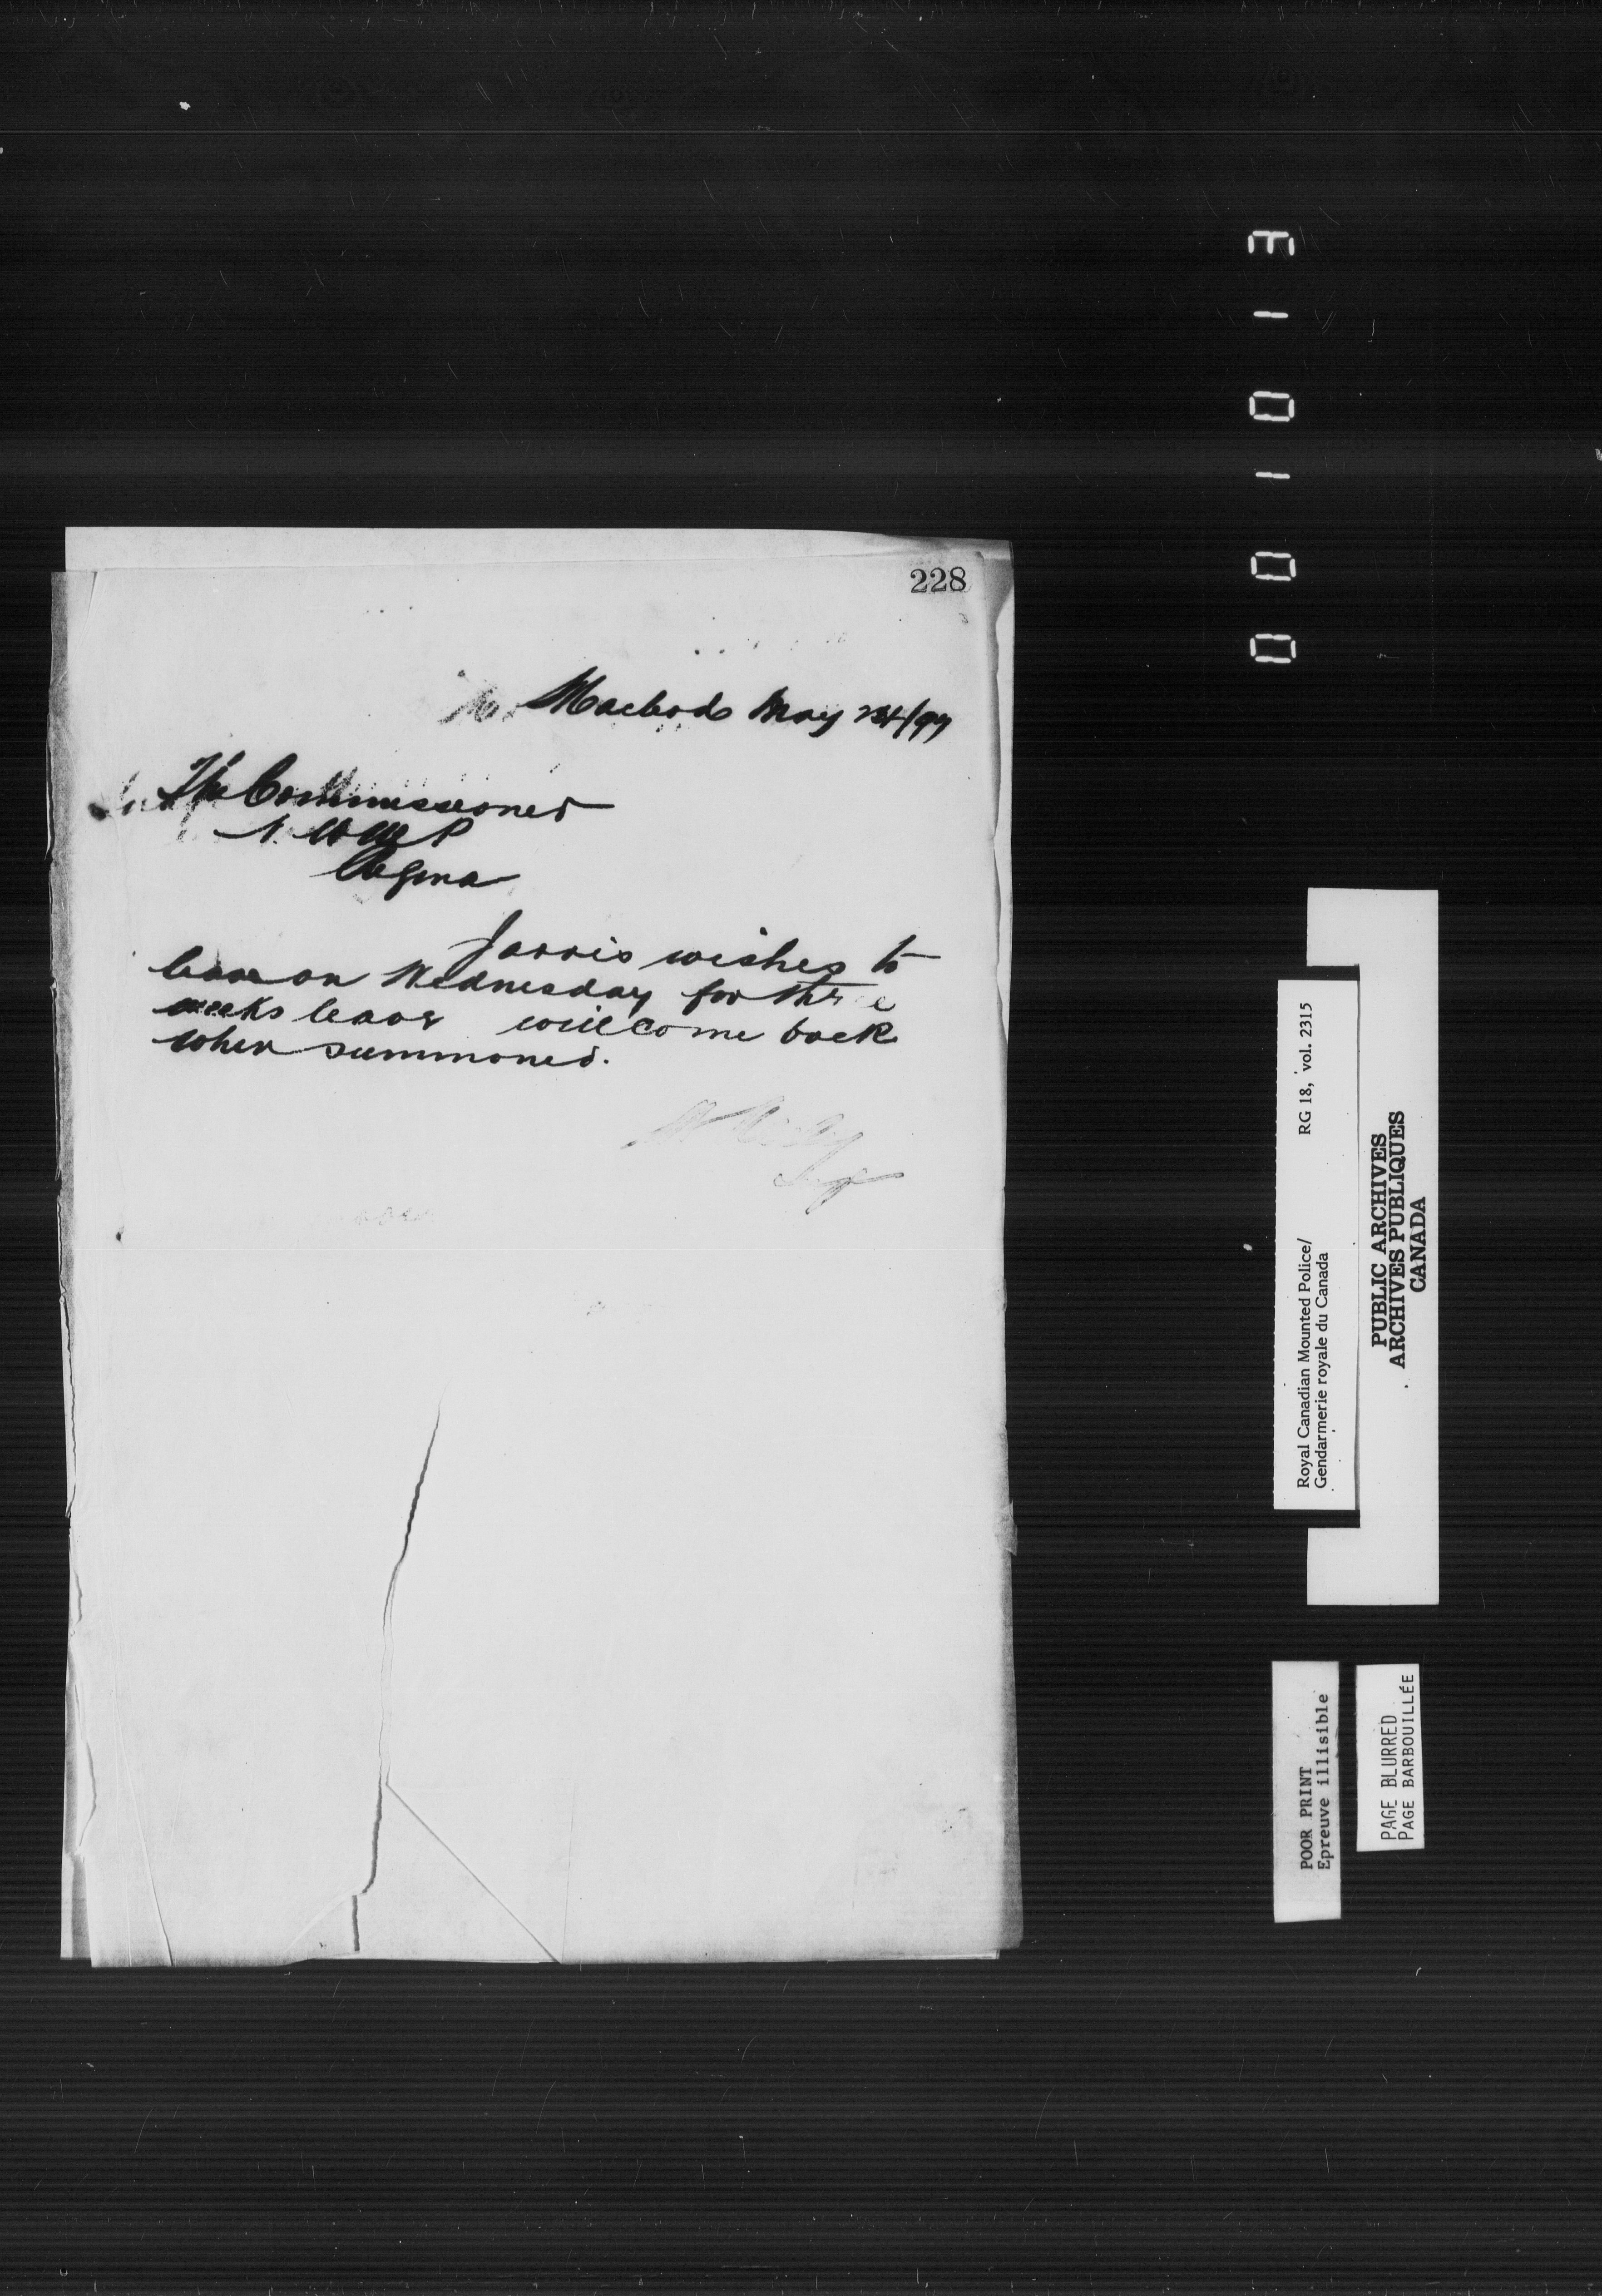 228
Macleod May 24/97
The Commissioner
N. W. M. P
Regina
Jarvis wishes to
leave on Wednesday for three
weeks leave will come back
when summoned.
Supt
001013
Royal Canadian Mounted Police/ RG 18, vol. 2315
Gendarmerie royale du Canada
PUBLIC ARCHIVES
ARCHIVES PUBLIQUES
CANADA
POOR PRINT
Epreuve illisible
PAGE BLURRED
PAGE BARBOUILLÉE